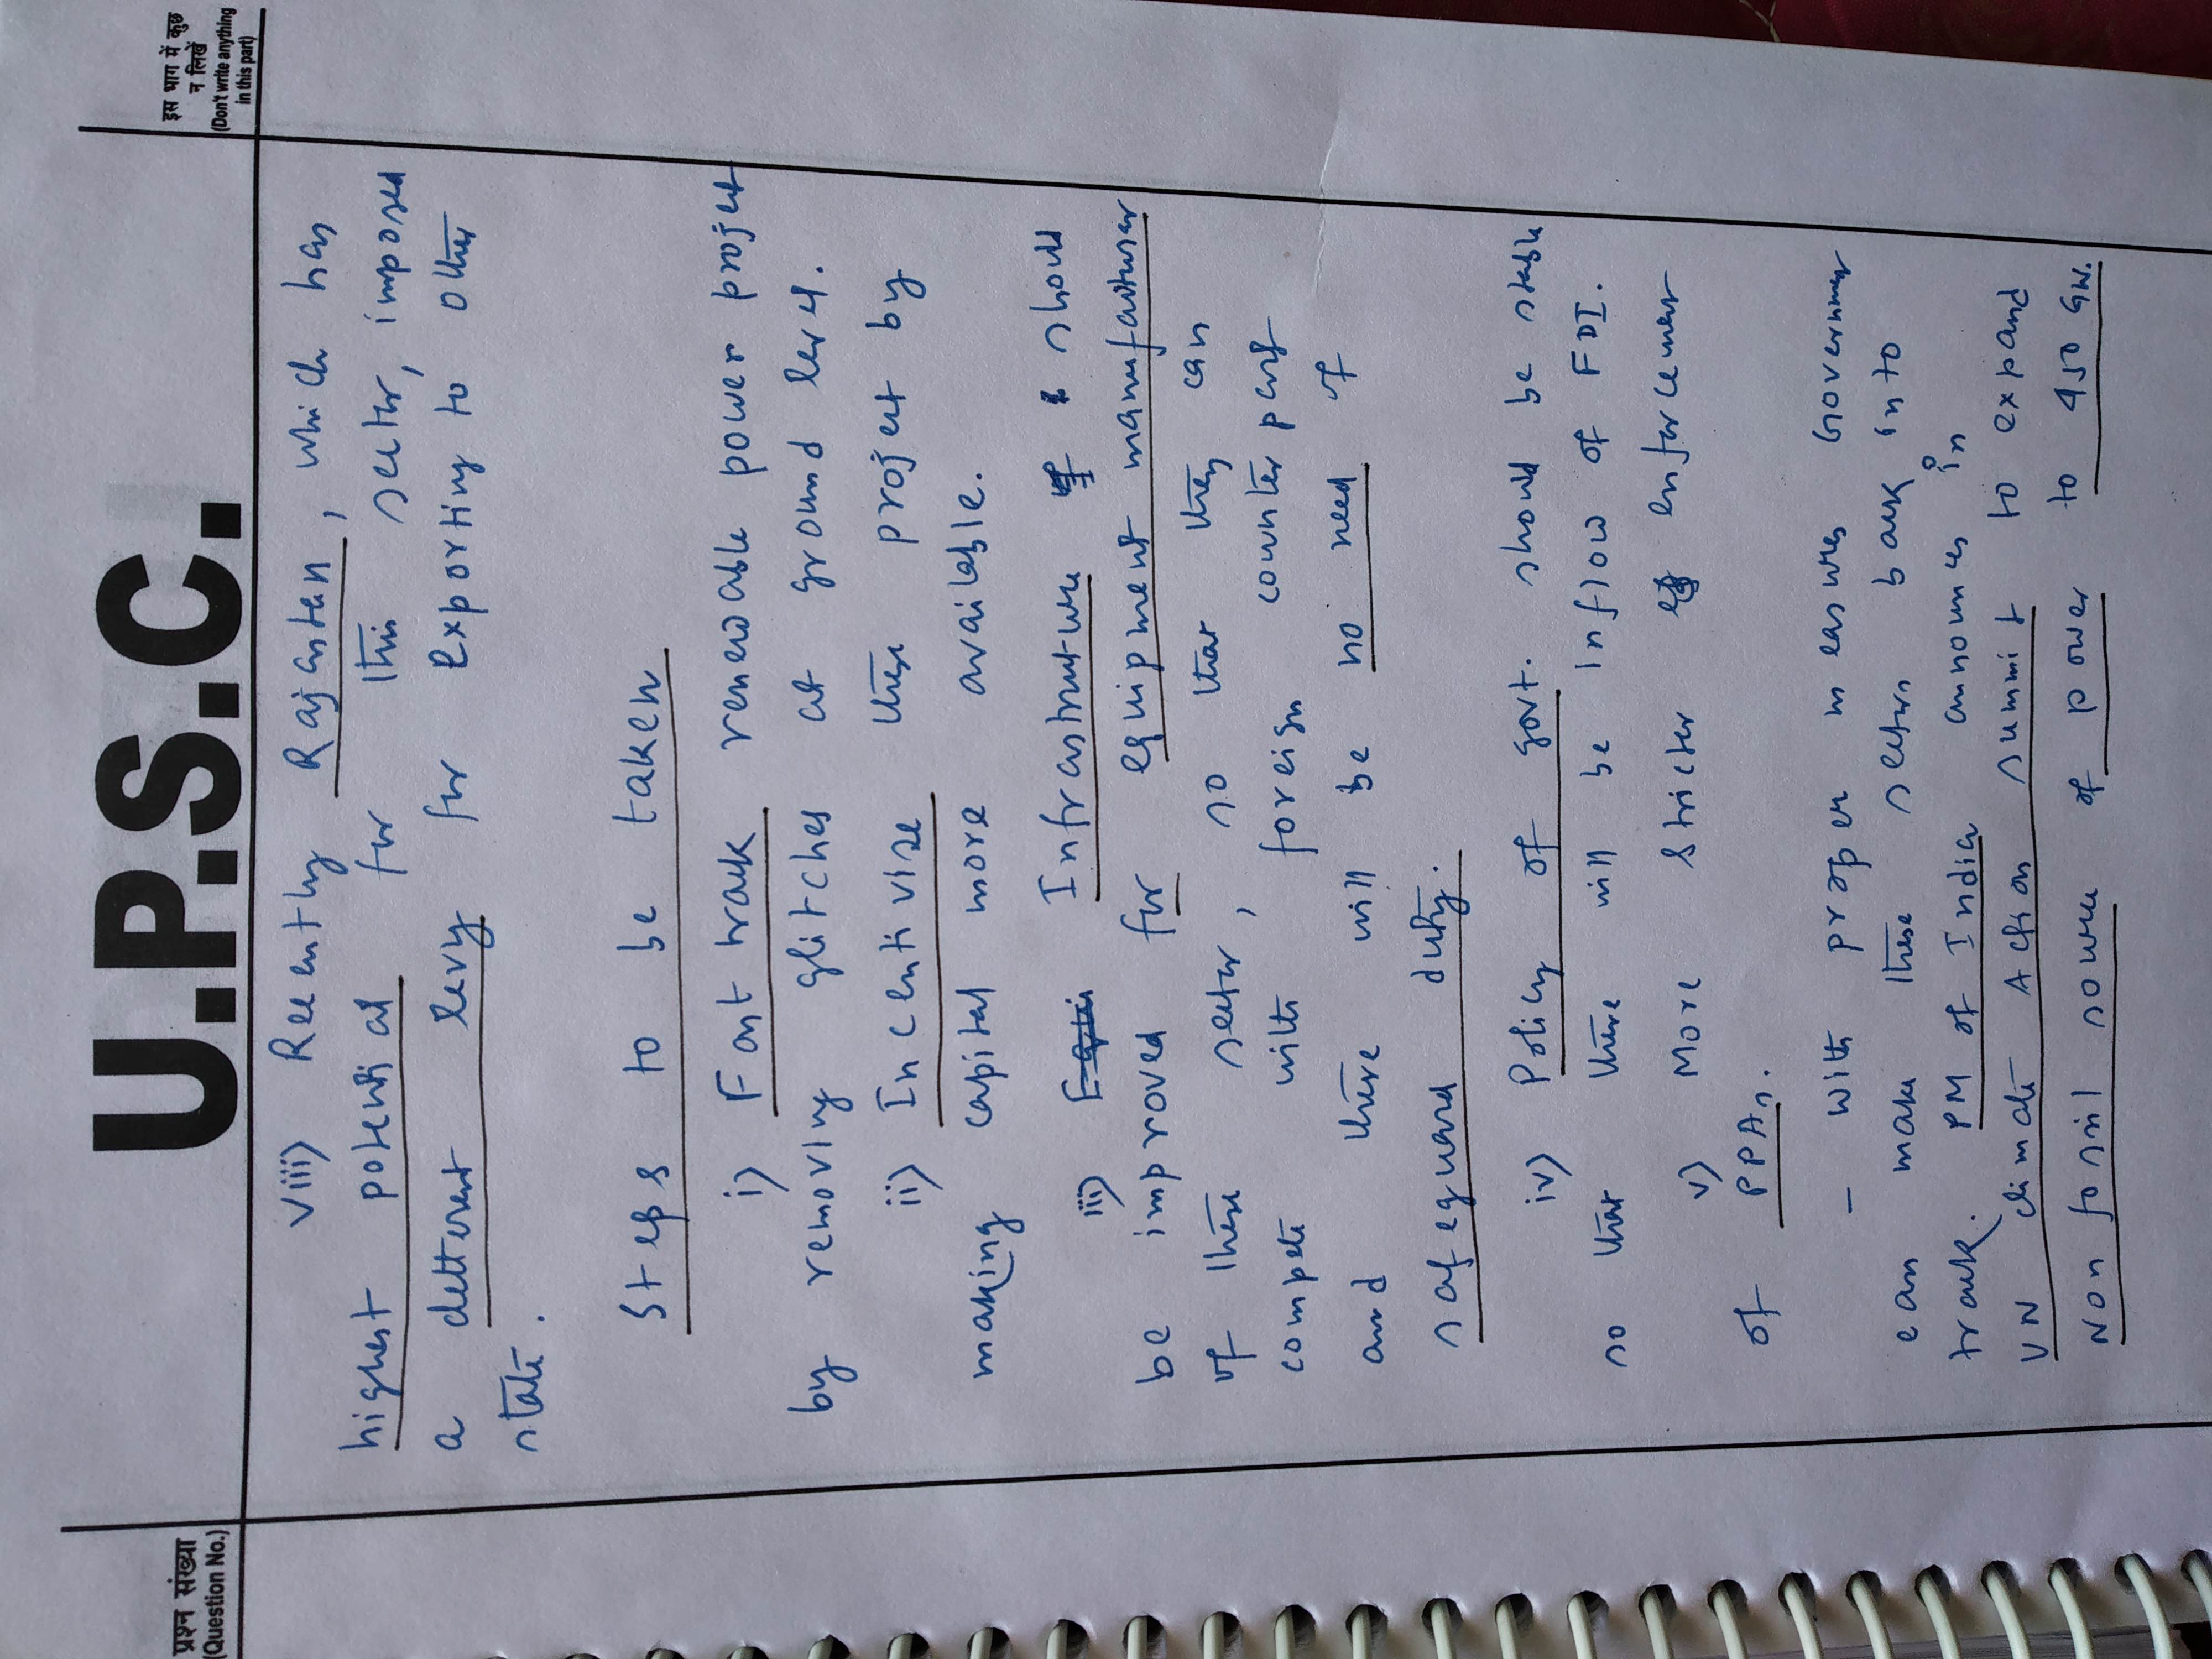 U.P.S.C.
प्रश्न संख्या
(Question No.)
इस भाग में कुछ
न लिखें
(Don't write anything
in this part)
viii) Recently Rajasthan, which has
highest potential for this sector, imposed
a detterent levy for exporting to other
state.
Steps to be taken
i) Fast track renewable power project
by removing glitches at ground level.
ii) Incentivize these project by
making capital more available.
iii) Infrastructure should
be improved for equipment manufacturer
of these sector, so that they can
compete with foreign counter part
and there will be no need of
safeguard duty.
iv) Policy of govt. should be stable
so that there will be inflow of FDI.
v) More stricter enforcement
of PPAs.
- With proper measures Government
can make these sectors back into
track. PM of India announces in
UN climate Action summit to expand
Non fossil source of power to 450 GW.